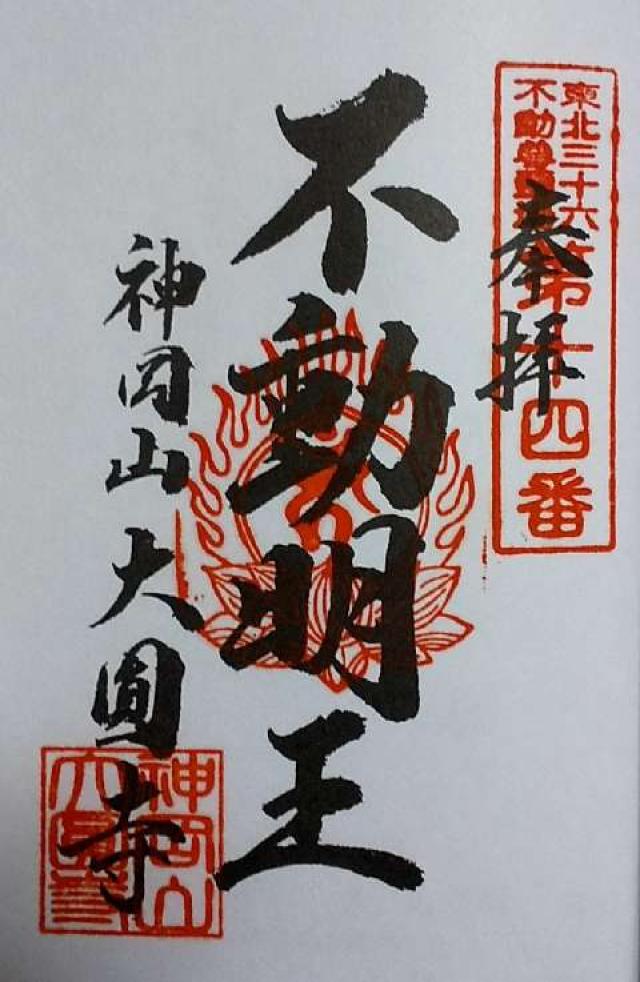 東北三十六
不動尊
第十四番
奉拝
不動明王
神岡山 大圓寺
神岡山
大圓寺